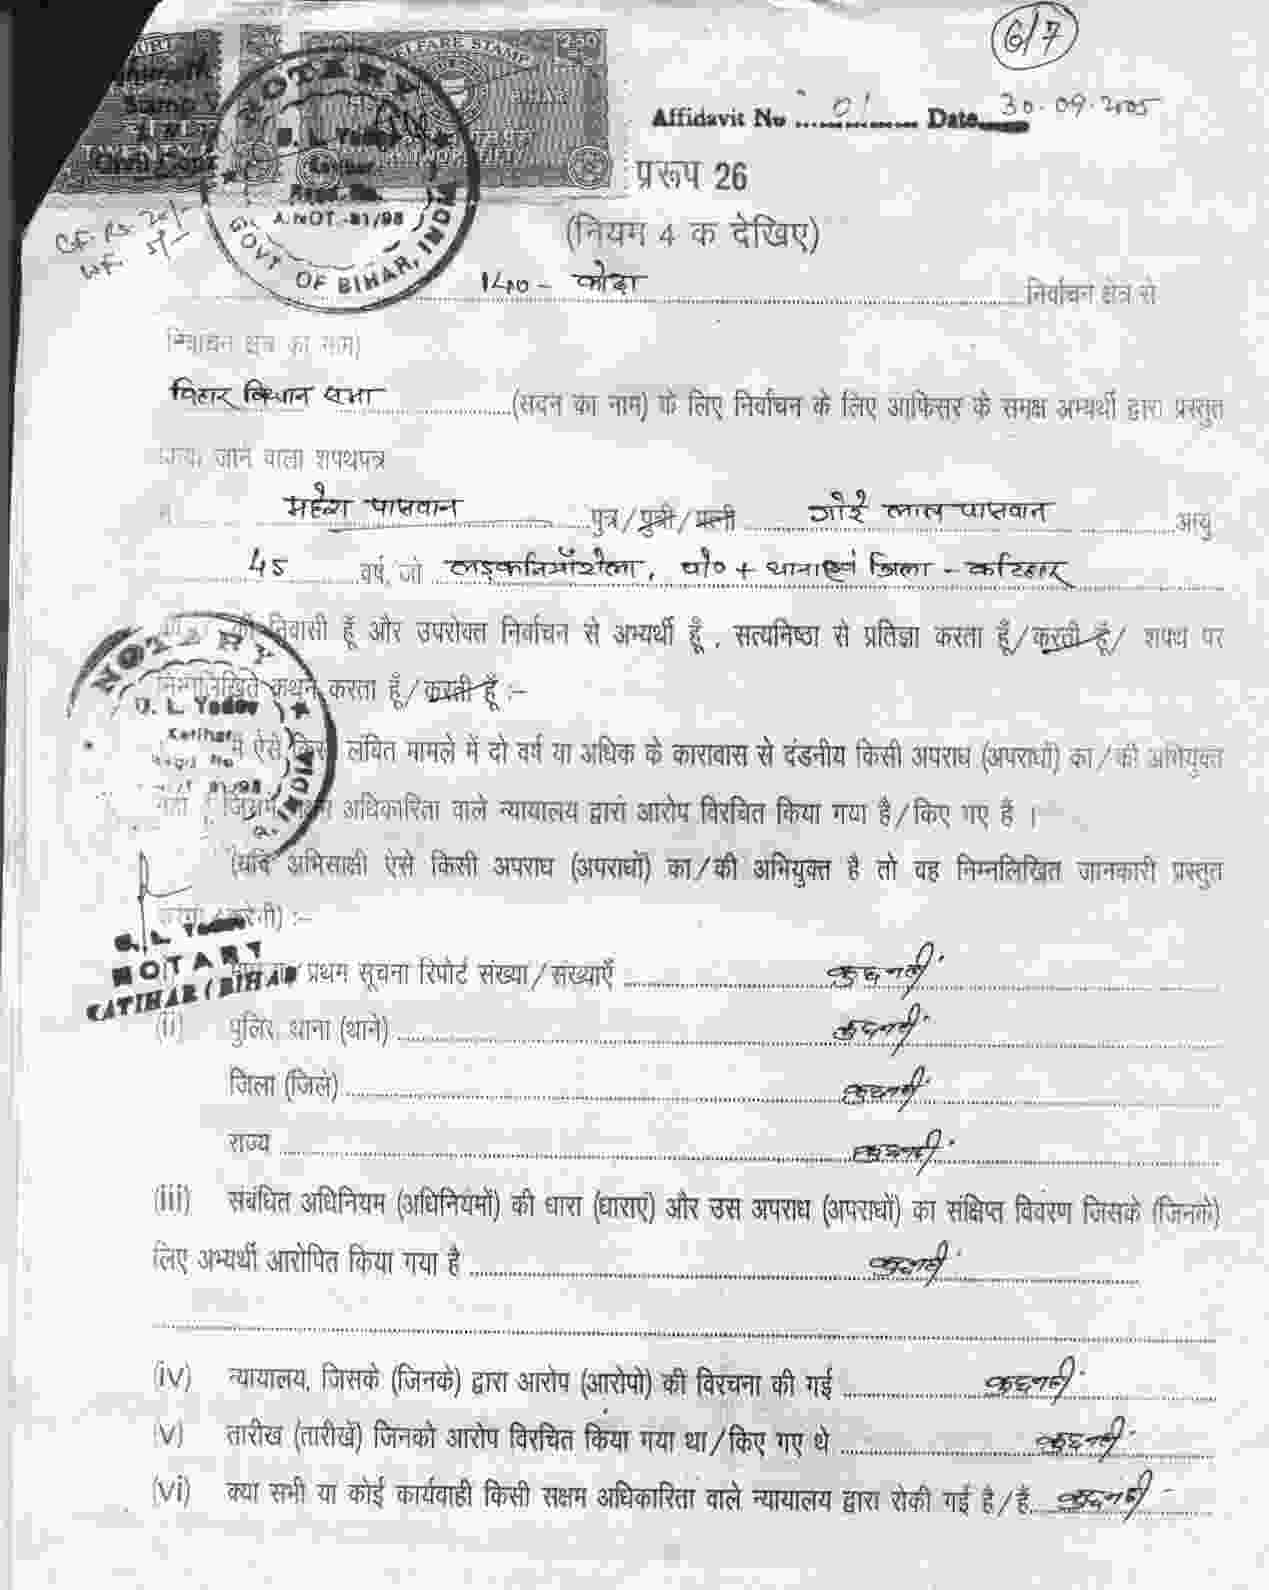 6/7
WELFARE STAMP 2.50
BIHAR
NOTARY
A.NOT.-81/98
GOVT OF BIHAR, INDIA
Affidavit No 01 Date 30.09.2005
प्ररूप 26
C.F. Rs. 20/-
W.F. 5/-
(नियम 4 क देखिए)
140 - कोढ़ा निर्वाचन क्षेत्र से
निर्वाचन क्षेत्र का नाम)
बिहार विधान सभा (सदन का नाम) के लिए निर्वाचन के लिए आफिसर के समक्ष अभ्यर्थी द्वारा प्रस्तुत
किया जाने वाला शपथपत्र
मैं महेश पासवान पुत्र/पुत्री/पत्नी गोरे लाल पासवान आयु
45 वर्ष, जो लड़कनियाँटोला, पो० + थाना एवं जिला - कटिहार
निवासी हूँ और उपरोक्त निर्वाचन से अभ्यर्थी हूँ, सत्यनिष्ठा से प्रतिज्ञा करता हूँ/करती हूँ/ शपथ पर
निम्नलिखित कथन करता हूँ/करती हूँ :-
मैं ऐसे किसी लंबित मामले में दो वर्ष या अधिक के कारावास से दंडनीय किसी अपराध (अपराधों) का/की अभियुक्त
नहीं हूँ जिसमें सक्षम अधिकारिता वाले न्यायालय द्वारा आरोप विरचित किया गया है/किए गए है ।
(यदि अभिसाक्षी ऐसे किसी अपराध (अपराधों) का/की अभियुक्त है तो वह निम्नलिखित जानकारी प्रस्तुत
करेगा/करेगी) :-
NOTARY
U. L. Yadav
Katihar
Regd No
81/98
INDIA
U. L. Yadav
NOTARY
KATIHAR (BIHAR)
प्रथम सूचना रिपोर्ट संख्या/संख्याएँ कुछ नहीं
(ii) पुलिस थाना (थाने) कुछ नहीं
जिला (जिले) कुछ नहीं
राज्य कुछ नहीं
(iii) संबंधित अधिनियम (अधिनियमों) की धारा (धाराएं) और उस अपराध (अपराधों) का संक्षिप्त विवरण जिसके (जिनके)
लिए अभ्यर्थी आरोपित किया गया है कुछ नहीं
(iv) न्यायालय, जिसके (जिनके) द्वारा आरोप (आरोपो) की विरचना की गई कुछ नहीं
(v) तारीख (तारीखें) जिनको आरोप विरचित किया गया था/किए गए थे कुछ नहीं
(vi) क्या सभी या कोई कार्यवाही किसी सक्षम अधिकारिता वाले न्यायालय द्वारा रोकी गई है/हैं कुछ नहीं